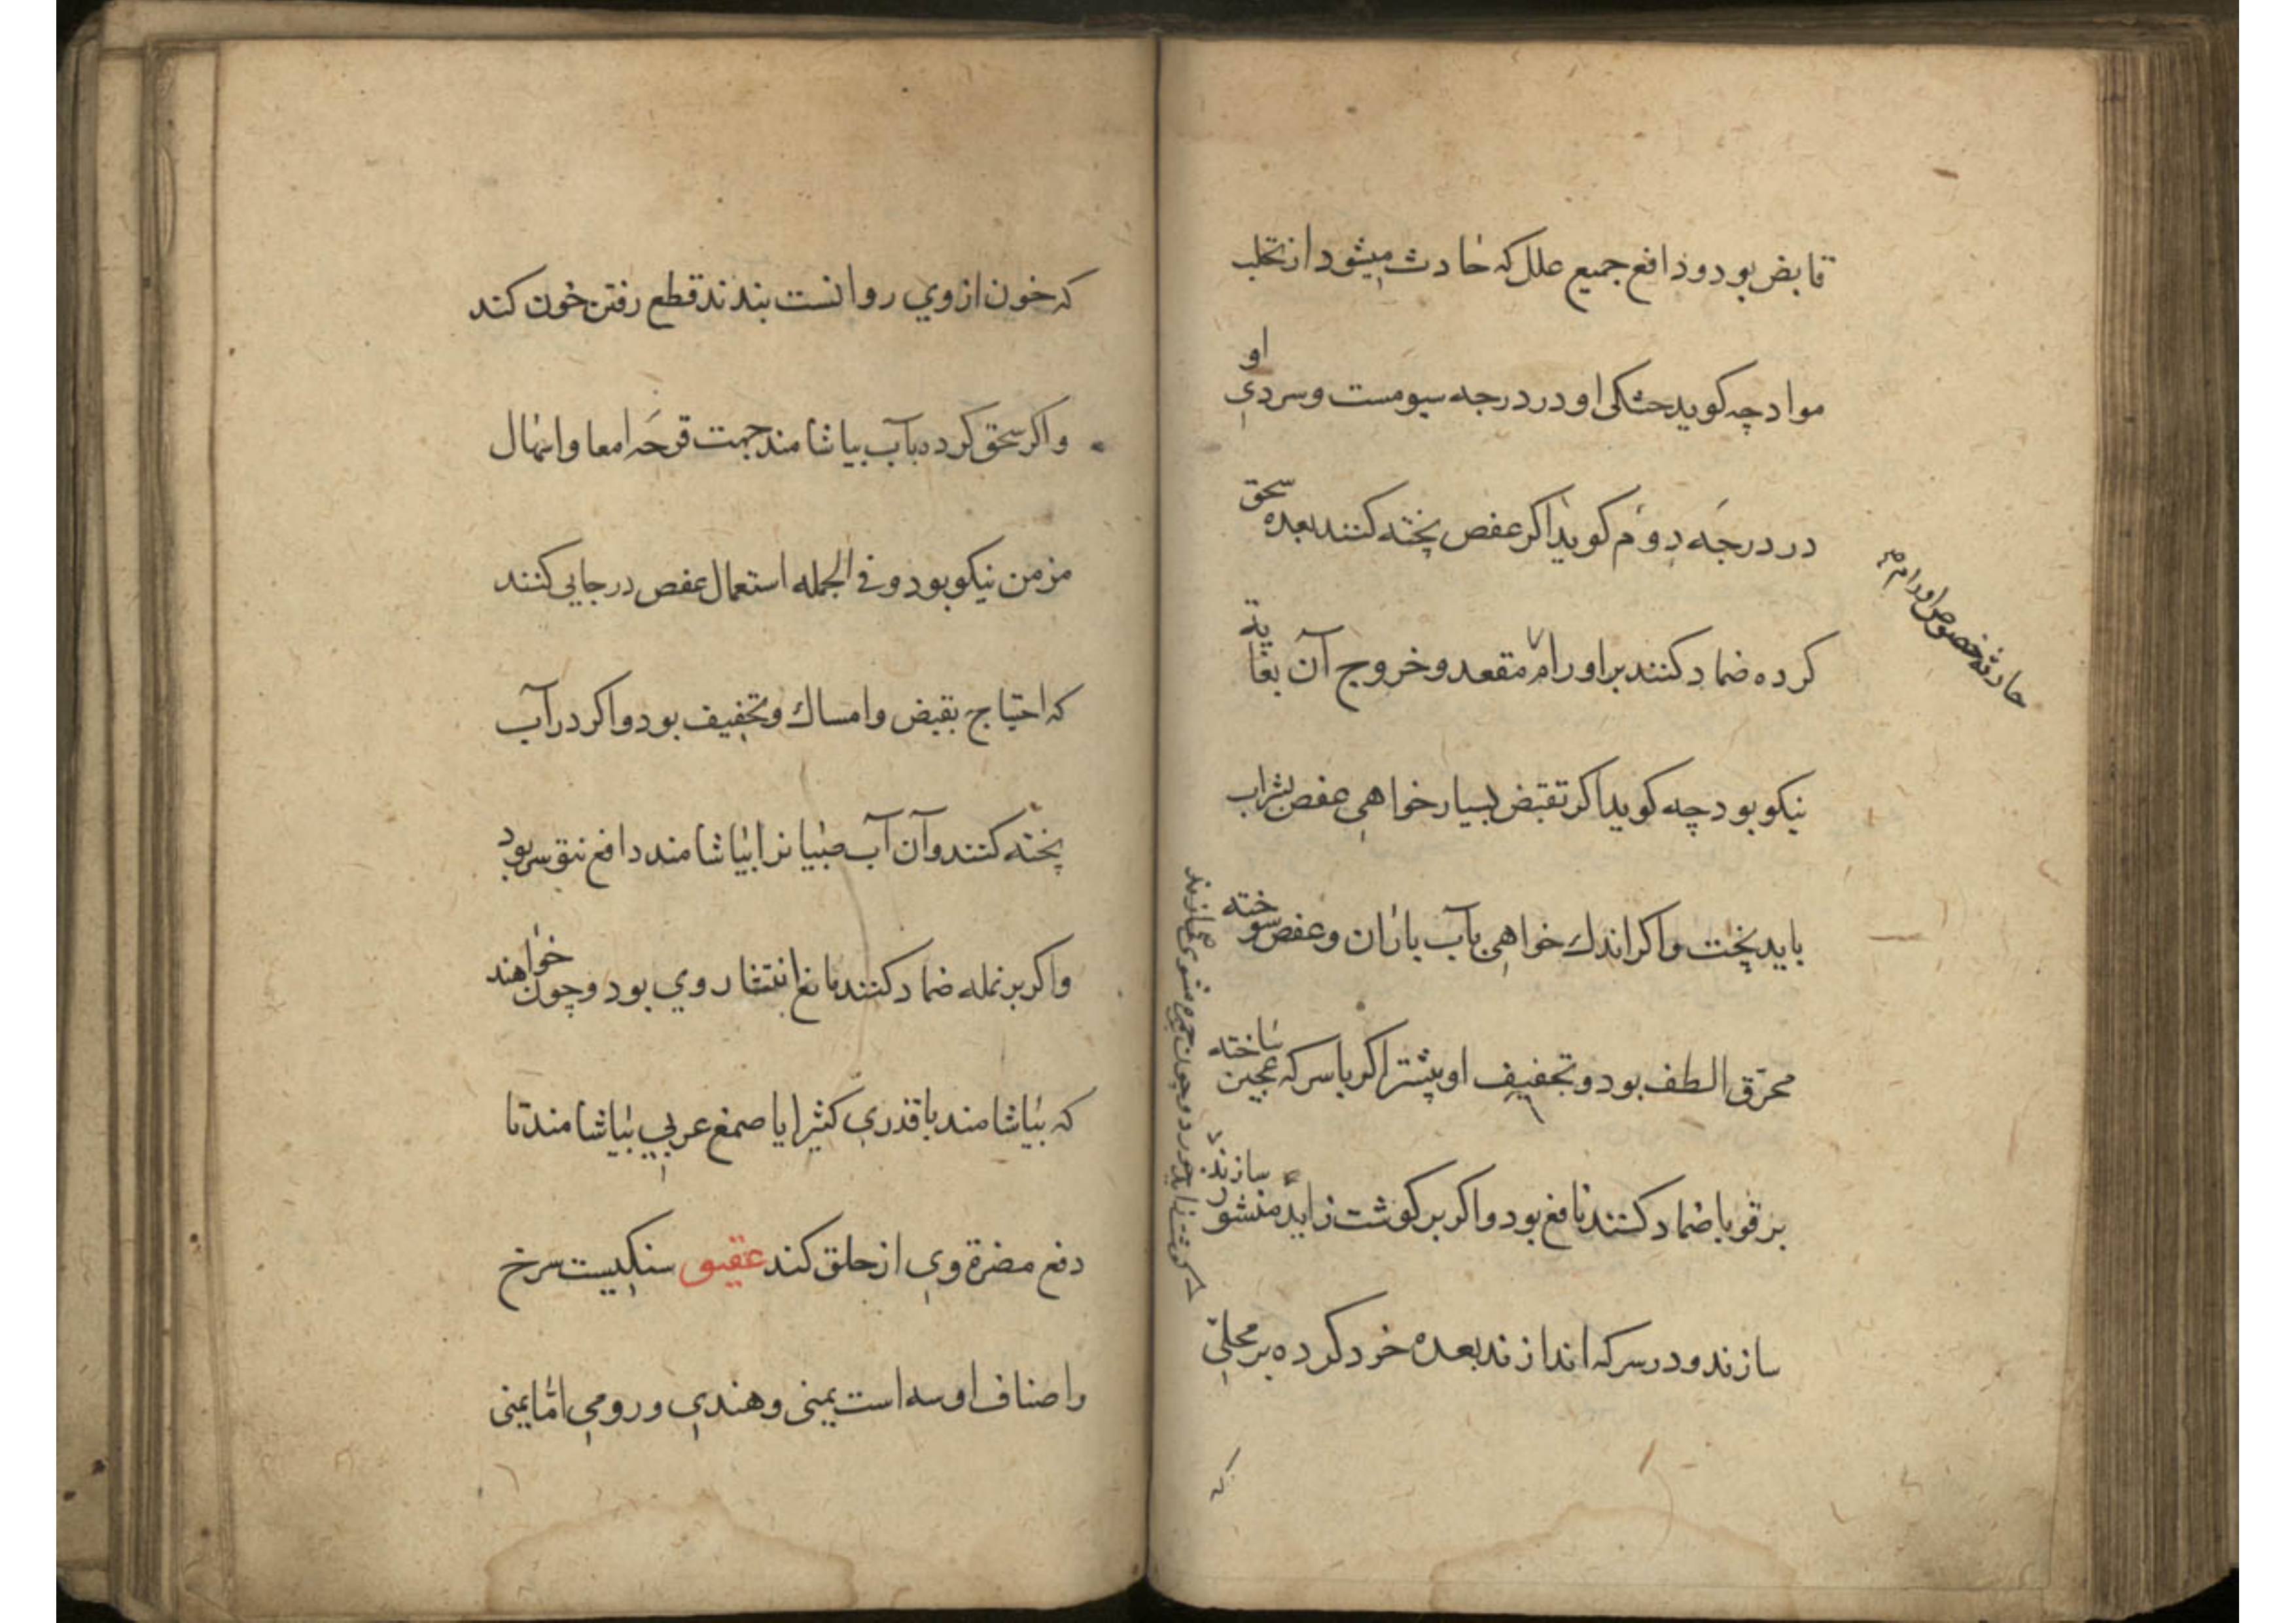 قابض بود و دافع جمیع علل که حادث میشود از تحلب
مواد چه کوید خشکی او در درجه سیومست و سردی او
در درجه دوم کوید اکر عفص پخته کنند بعده سحق
کرده ضماد کنند بر اورام مقعد و خروج آن بغایة
نیکو بود چه کوید اکر تقبض بسیار خواهی عفص بشراب
باید پخت و اکر اندك خواهی بآب باران و عفص سوخته
محرق الطف بود و تجفیف او بیشتر اکر با سرکه عجین ساخته
بر قوبا ضماد کنند نافع بود و اکر بر کوشت زاید منشور سازند
سازند و در سرکه اندازند بعده خرد کرده بر محلی
که
حادثه خصوص اورام
که خون از وي روانست بندند قطع رفتن خون کند
و اکر سحق کرده بآب بیاشامند جهت قرحه امعا و اسهال
مزمن نیکو بود و فی الجمله استعمال عفص در جایی کنند
که احتیاج بقبض و امساك و تجفیف بود و اکر در آب
پخته کنند و آن آب صبیانرا بیاشامند دافع نتق سر بود
و اکر بر نمله ضماد کنند مانع انتشار وي بود و چون خواهند
که بیاشامند با قدري کثیرا یا صمغ عربي بیاشامند تا
دفع مضرة وي از حلق کند عقیق سنکیست سرخ
و اصناف او سه است یمنی و هندي و رومي امّا یمنی